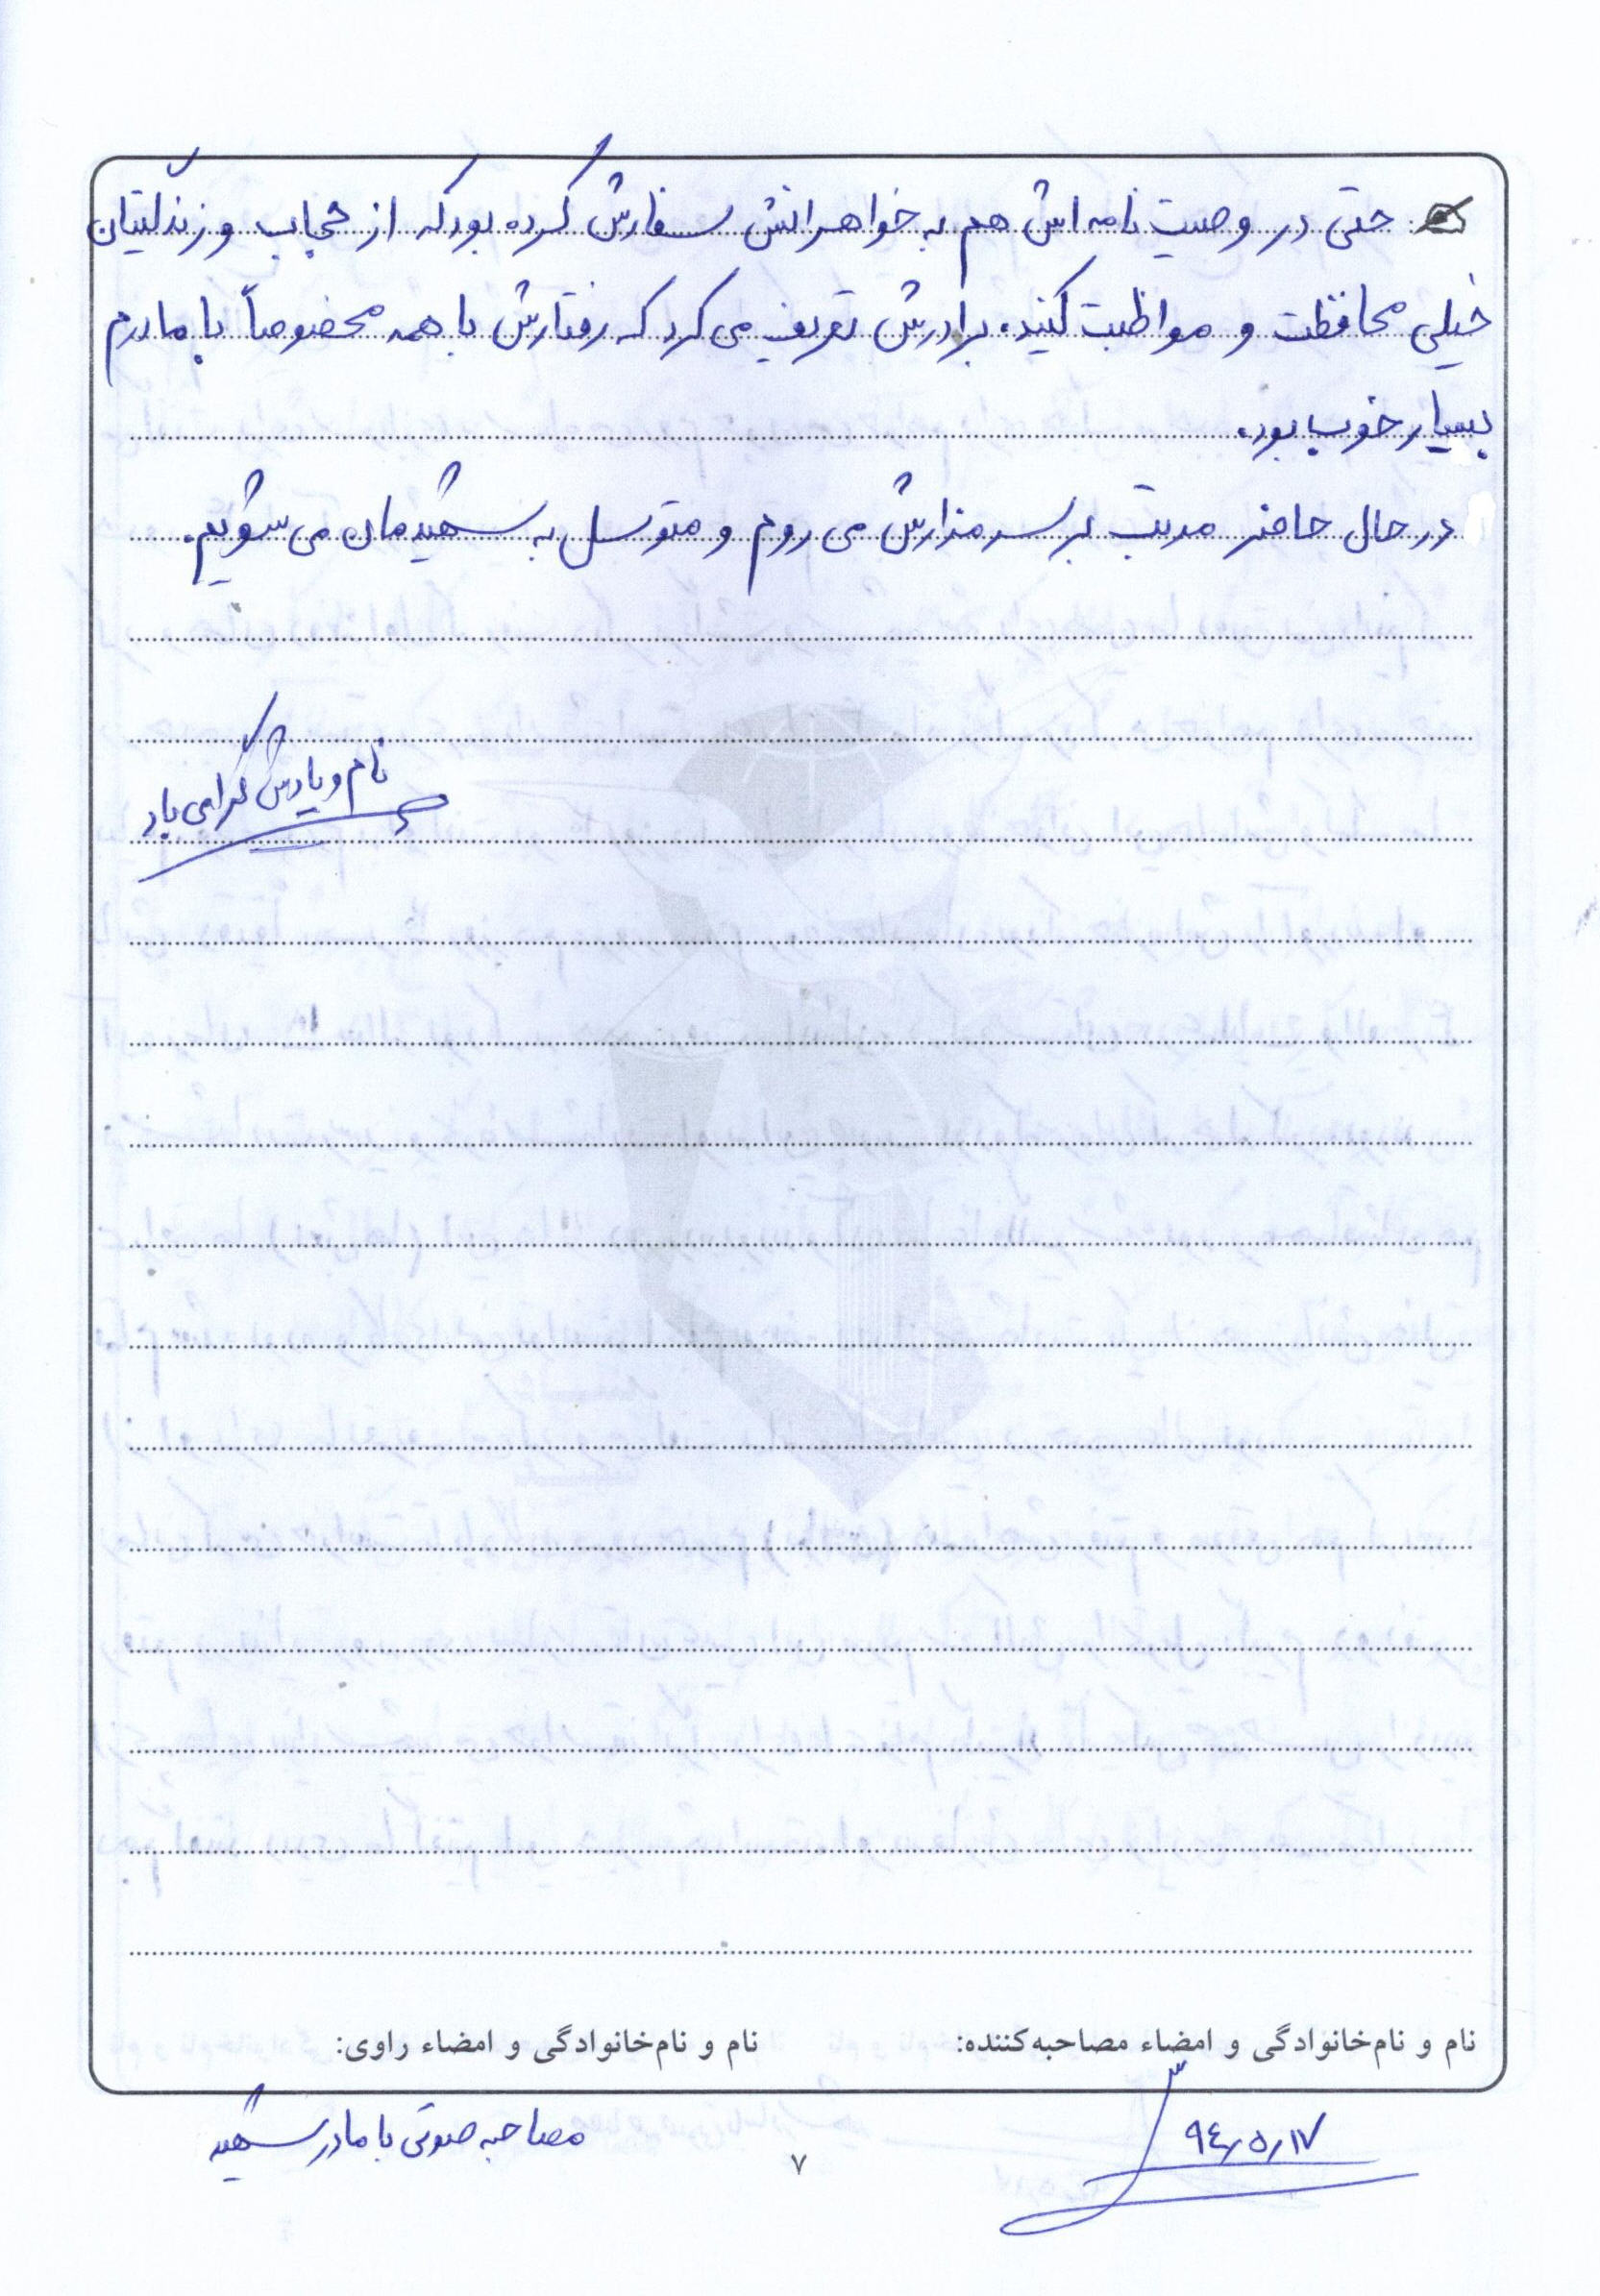 حتی در وصیت نامه اش هم به خواهرانش سفارش کرده بود که از حجاب و زندگیتان
خیلی محافظت و مواظبت کنید. برادرش تعریف می کرد که رفتارش با همه مخصوصاً با مادرم
بسیار خوب بود.
در حال حاضر مرتب بر سر مزارش می روم و متوسل به شهیدمان می شویم.
نام و یادش گرامی باد
نام و نام‌خانوادگی و امضاء مصاحبه‌کننده:
نام و نام‌خانوادگی و امضاء راوی:
۹۴,۵,۱۷
مصاحبه صوتی با مادر شهید
۷